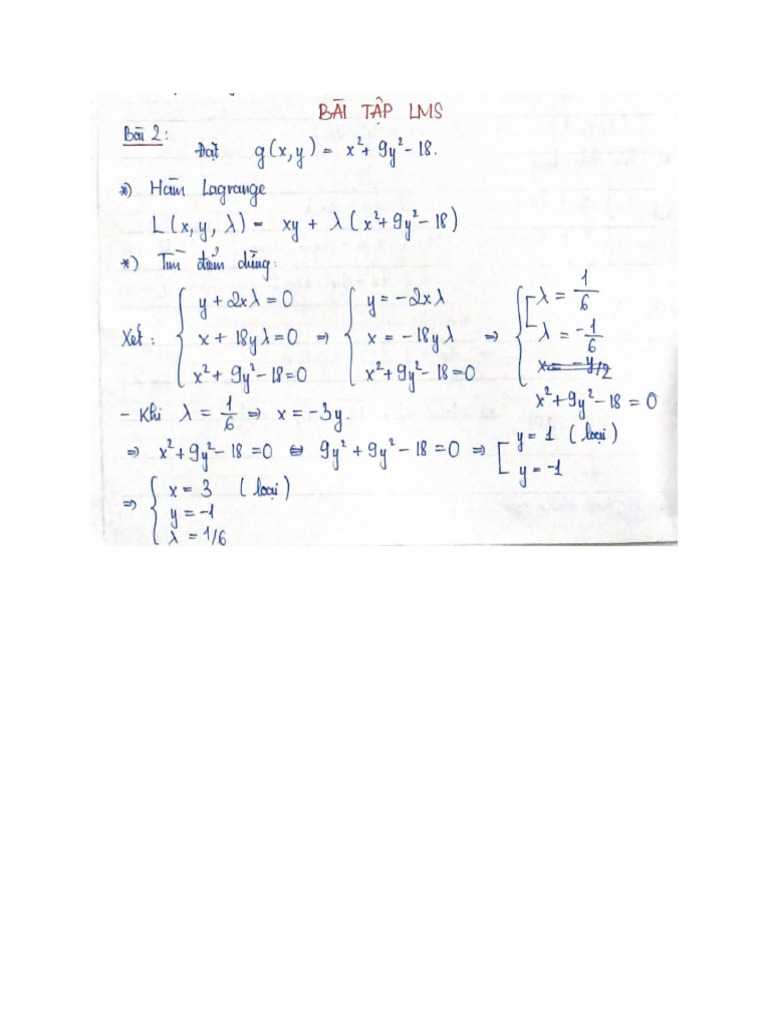 BÀI TẬP LMS
Bài 2:
Đặt g(x,y) = x²+ 9y²- 18.
*) Hàm Lagrange
L(x, y, λ) = xy + λ(x²+9y²- 18)
*) Tìm điểm dừng:
Xét: { y + 2xλ = 0 { y = - 2xλ { [ λ = 1/6
x + 18yλ = 0 ⇒ x = - 18yλ ⇒ λ = -1/6
x²+ 9y²- 18 = 0 x²+ 9y²- 18 = 0 x = - y/2
x²+9y²- 18 = 0
- Khi λ = 1/6 ⇒ x = -3y.
⇒ x²+9y²- 18 = 0 ⇔ 9y²+9y²- 18 = 0 ⇒ [ y = 1 (loại)
y = -1
⇒ { x = 3 (loại)
y = -1
λ = 1/6